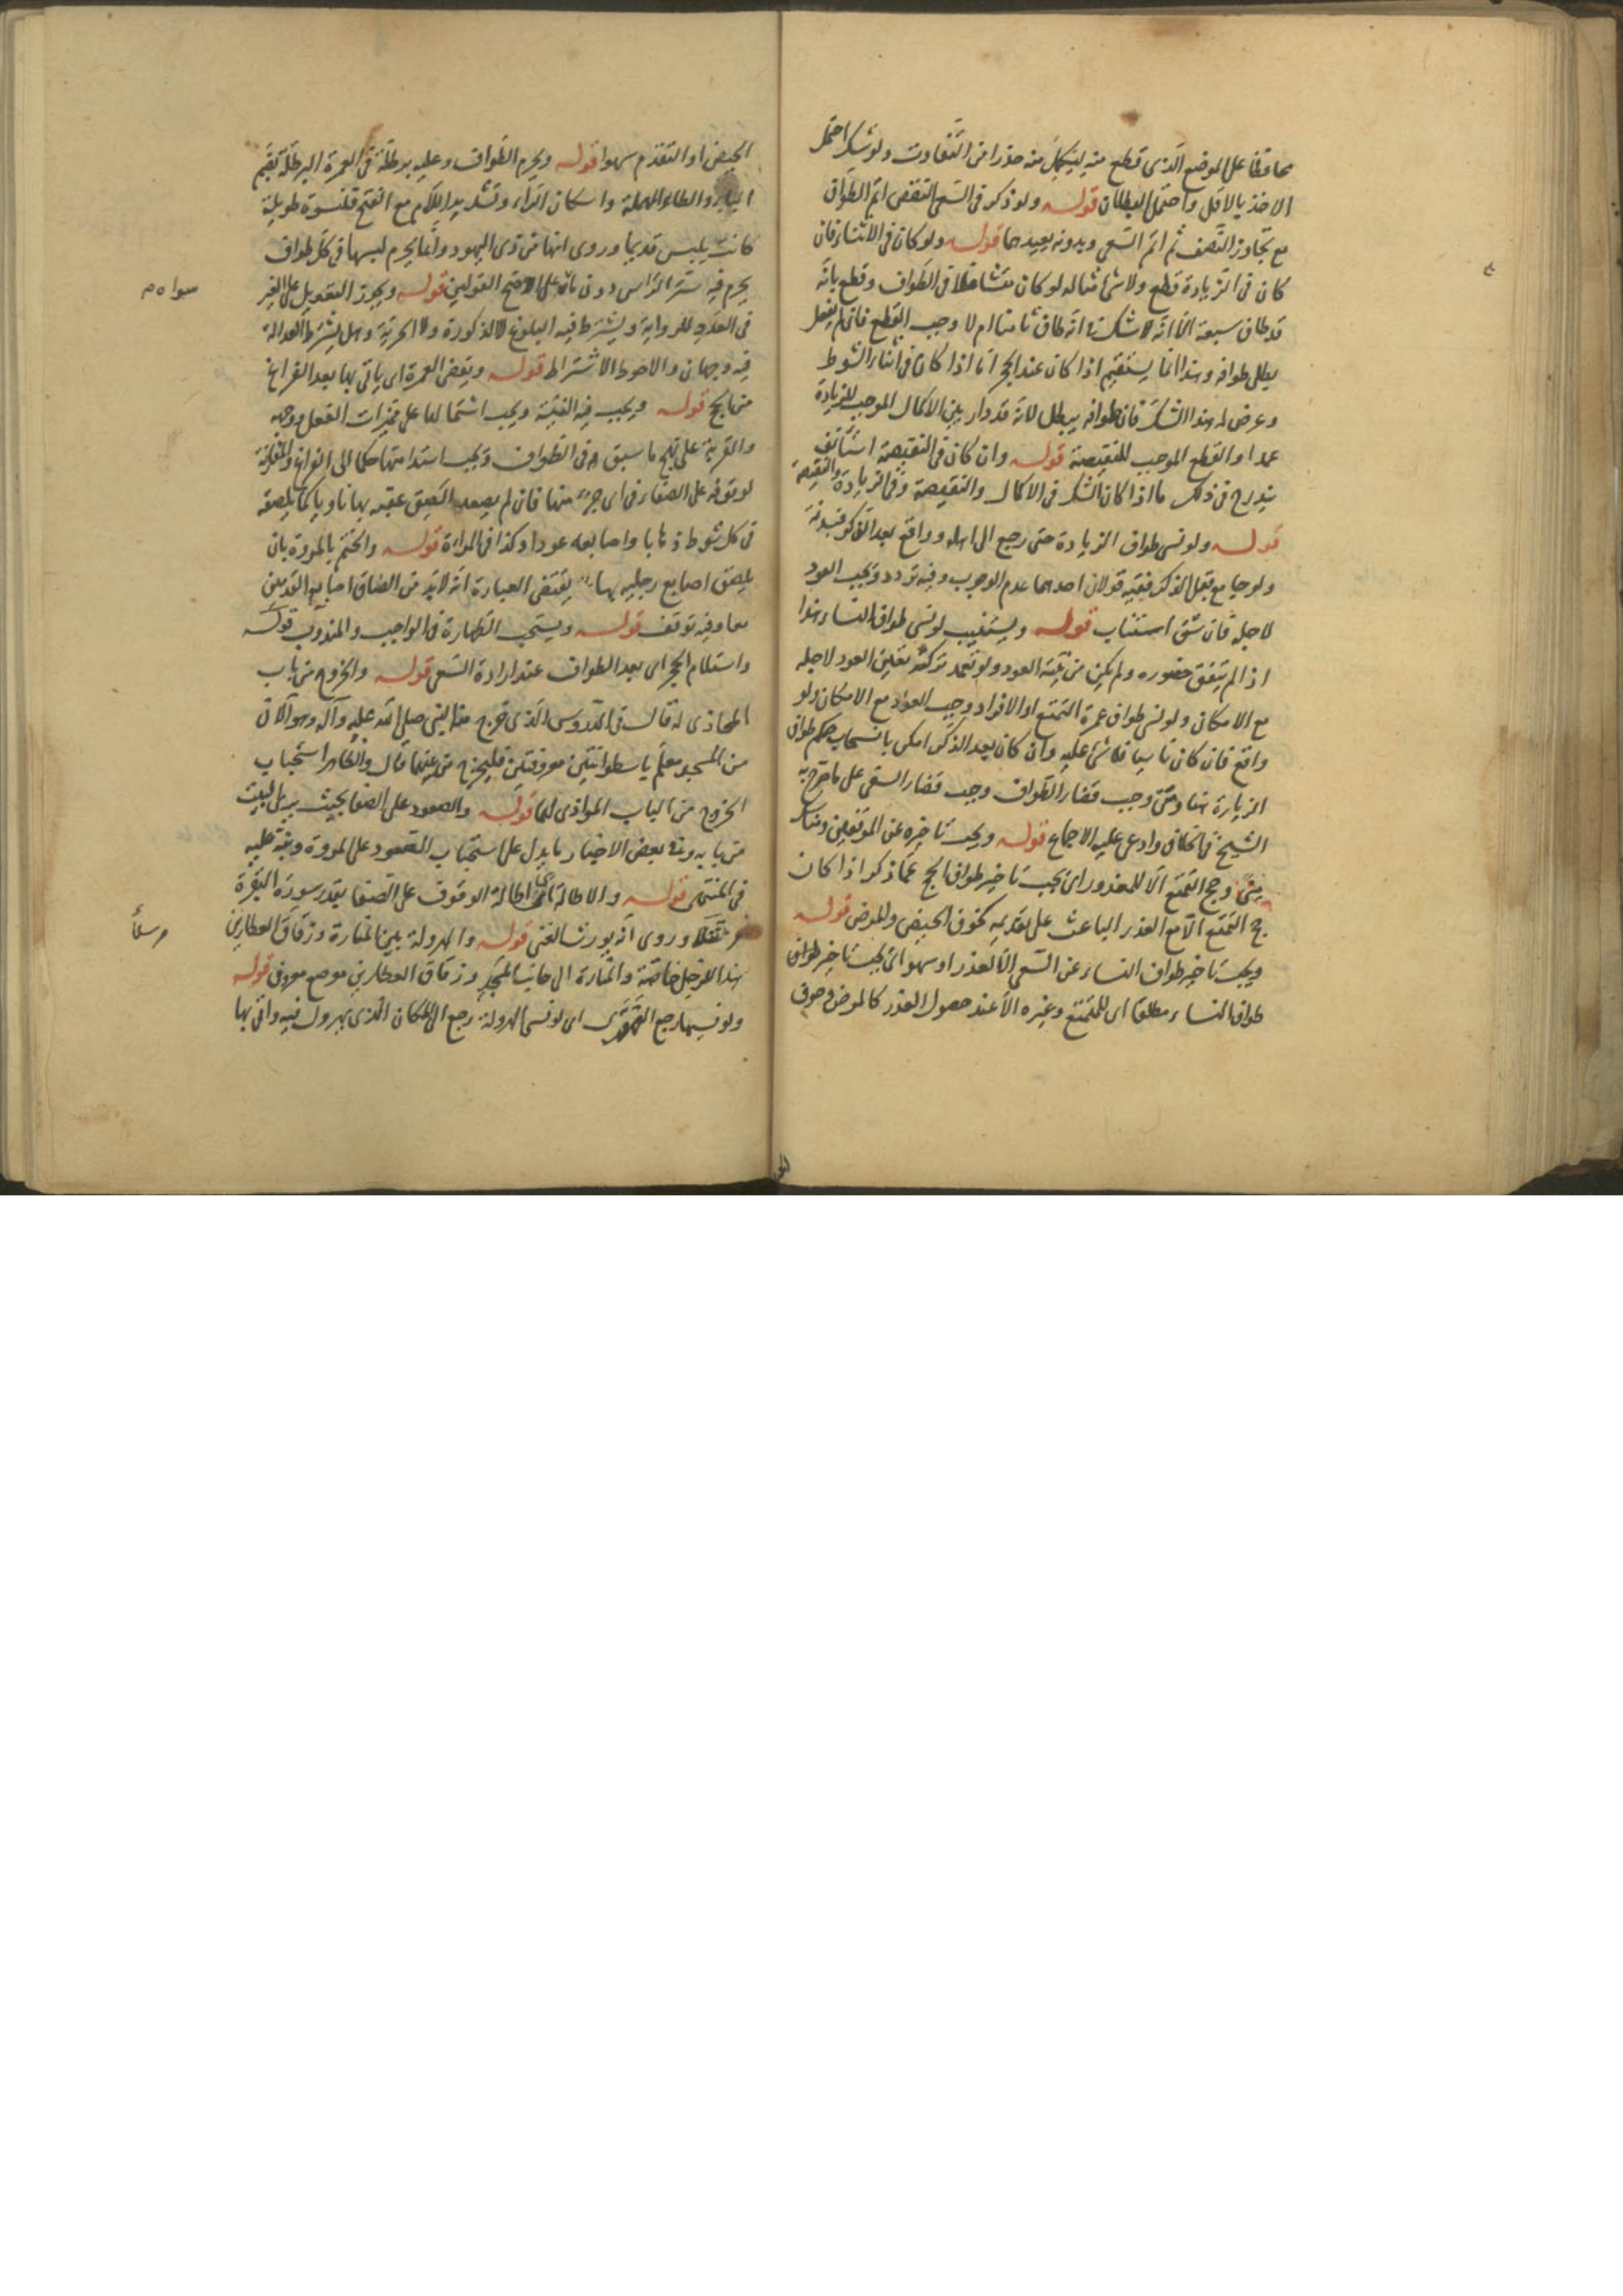 محافظا على الموضع الذى قطع منه ليكمل منه حذرا من التفاوت ولو شك احتمل
الاخذ بالاقل واحتمل البطلان قوله ولو ذكر فى السعى النقص اتم الطواف
مع تجاوز النصف ثم اتم السعى وبدونه يعيدهما قوله ولو كان فى الاثناء فان
كان فى الزيادة قطع ولا شئ مثاله لو كان متشاغلا فى الطواف وقطع بانه
قد طاف سبعة الا انه شك انه طاف ثامنا ام لا وجب القطع فان لم يفعل
بطل طوافه وهذا انما يستقيم اذا كان عند الحجر اما اذا كان فى اثناء الشوط
وعرض له هذا الشك فان طوافه يبطل لانه قد دار بين الاكمال الموجب للزيادة
عمدا او القطع الموجب للنقيصة قوله وان كان فى النقيصة استأنف
يندرج فى ذلك ما اذا كان الشك فى الاكمال والنقيصة وفى الزيادة والنقيصة
قوله ولو نسى طواف الزيادة حتى رجع الى اهله وواقع بعد الذكر فبدنة
ولو جامع قبل الذكر ففيه قولان احدهما عدم الوجوب وفيه تردد ويجب العود
لاجله فان شق استناب قوله ويستنيب لو نسى طواف النساء هذا
اذا لم يتفق حضوره ولم يكن من نيته العود ولو تعمد تركه تعين العود لاجله
مع الامكان ولو نسى طواف عمرة التمتع او الافراد وجب العود مع الامكان ولو
واقع فان كان ناسيا فلا شئ عليه وان كان بعد الذكر امكن بانسحاب حكم طواف
الزيارة هنا ومتى وجب قضاء الطواف وجب قضاء السعى على ما صرح به
الشيخ فى الخلاف وادعى عليه الاجماع قوله ويجب تاخيره عن الموقفين ومناسك
منى وحج التمتع الا للمعذور اى يجب تاخير طواف الحج عما ذكر اذا كان
حج التمتع الا مع العذر الباعث على تقديمه كخوف الحيض والمرض قوله
ويجب تاخير طواف النساء عن السعى الا لعذر او سهو اى يجب تاخير طواف
طواف النساء مطلقا اى للمتمتع وغيره الا عند حصول العذر كالمرض وخوف
الحيض او التقدم سهوا قوله ويحرم الطواف وعليه برطلة فى العمرة البرطلة بضم
الباء والطاء المهملة واسكان الراء وتشديد اللام مع الفتح قلنسوة طويلة
كانت يلبس قديما وروى انها من زى اليهود وانما يحرم لبسها فى كل طواف
يحرم فيه ستر الراس دون غيره على الاصح القولين قوله ويجوز التعويل على الغير
فى العدد للرواية ويشترط فيه البلوغ لا الذكورة ولا الحرية وهل يشترط العدالة
فيه وجهان والاحوط الاشتراط قوله وبعض العمرة اى ياتى بها بعد الفراغ
من الحج قوله ويجب فيه النية ويجب اشتمالها على مميزات الفعل ووجهه
والقربة على نهج ما سبق فى الطواف ويجب استدامتها حكما الى الفراغ والمقارنة
لوقوفه على الصفا فى اى جزء منها فان لم يصعد الصق عقبه بها ناويا كما يلصقه
فى كل شوط ذهابا واصابعه عودا وكذا فى المراة قوله والختم بالمروة بان
يلصق اصابع رجليه بها يقتضى العبارة انه لا بد من الصاق اصابع القدمين
معا وفيه توقف قوله ويستحب الطهارة فى الواجب والمندوب قوله
واستلام الحجر اى بعد الطواف عند ارادة السعى قوله والخروج من باب
المحاذى له قال فى الدروس الذى خرج منه النبى صلى الله عليه وآله وهو الان
من المسجد معلم باسطوانتين معروفتين فليخرج من بينهما قال والظاهر استحباب
الخروج من الباب الموازى لهما قوله والصعود على الصفا بحيث يرى البيت
من بابه وفى بعض الاخبار ما يدل على استحباب الصعود على المروة ونبه عليه
فى المنتهى قوله والاطالة اى اطالة الوقوف على الصفا بقدر سورة البقرة
مترسلا وروى انه يورث الغنى قوله والهرولة بين المنارة وزقاق العطارين
هذا للرجل خاصة والمنارة الى جانب المسجد وزقاق العطارين موضع معروف قوله
ولو نسيها رجع القهقرى اى لو نسى الهرولة رجع الى المكان الذى يهرول فيه واتى بها
سواه م